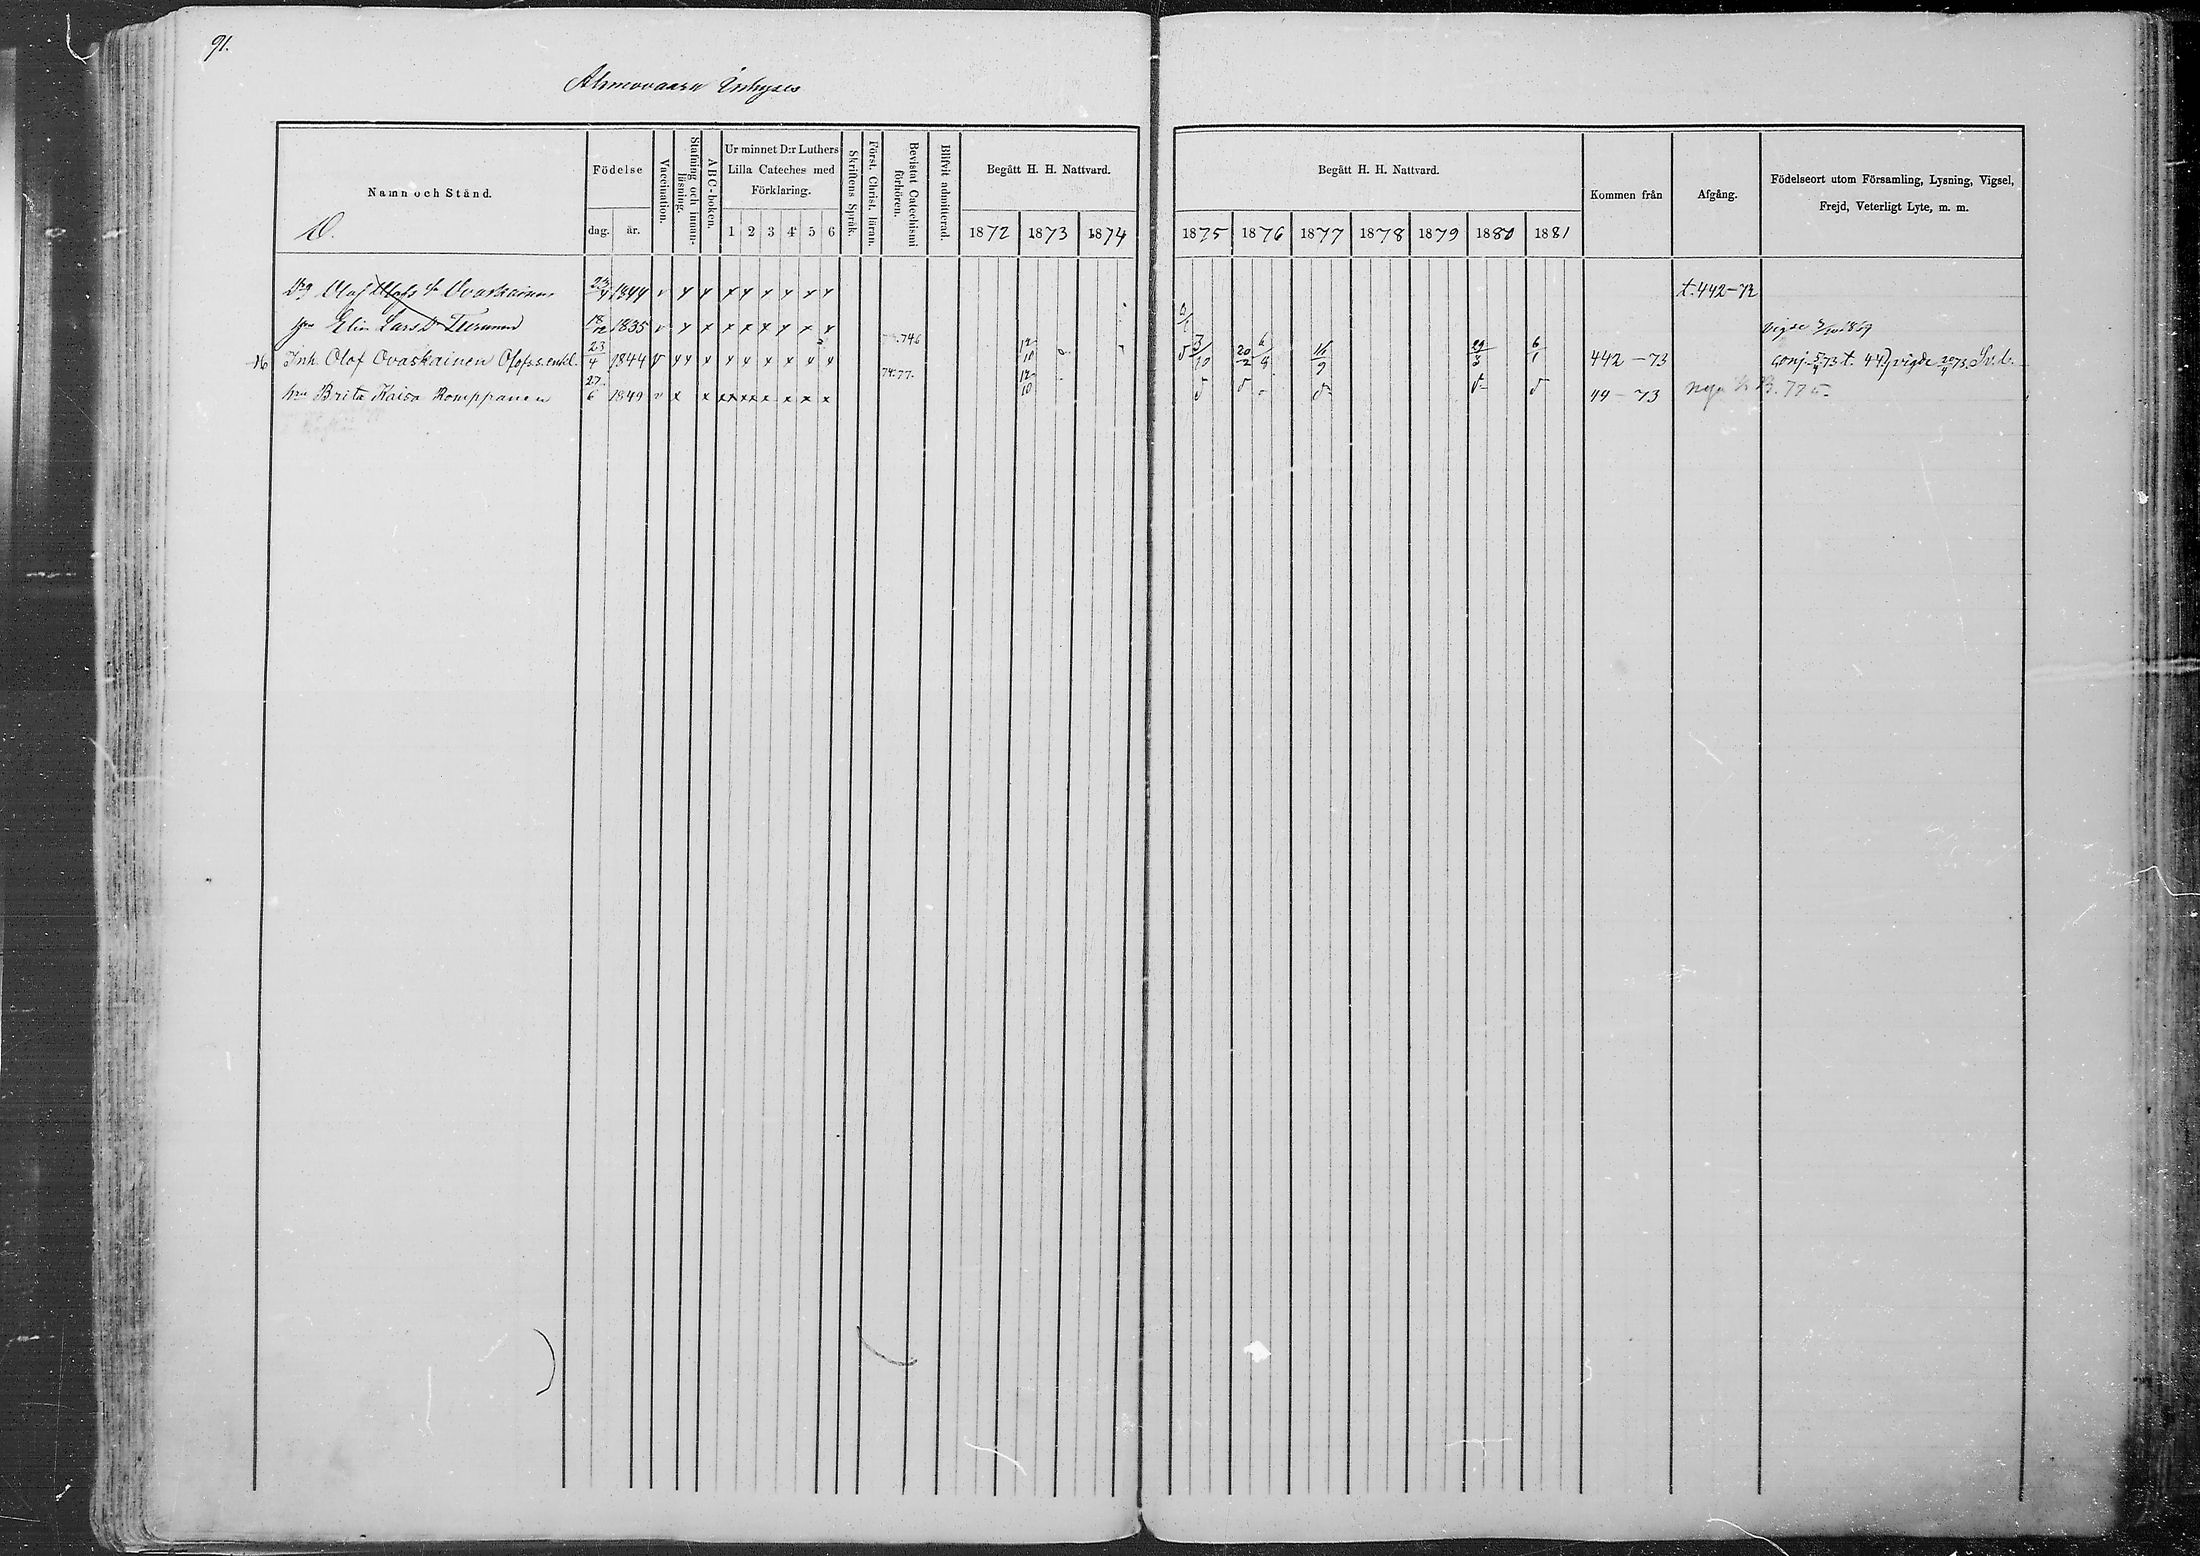 91.
Ahmovaara Inhyses
Namn och Stånd.
O.
Födelse
dag.
år.
Vaccination.
Stafning och innan-läsning.
ABC-boken.
Ur minnet D:r Luthers
Lilla Cateches med
Förklaring.
1 2 3 4 5 6
Skriftens Språk.
Först. Christ. läran.
Bevistat Catechismi förhören.
Blifvit admitterad.
Begått H. H. Nattvard.
1872 1873 1874
Begått H. H. Nattvard.
1875 1876 1877 1878 1879 1880 1881
Kommen från
Afgång.
Födelseort utom Församling, Lysning, Vigsel,
Frejd, Veterligt Lyte, m. m.
Drg Olof Olofs s Ovaskainen 23/4 1844 v x x x x x x x x t. 442-72
hu Elin Lars D. 18/12 1835 v x x x x x x x x 746
Inh. Olof Ovaskainen Olofss. enkl. 23/4 1844 v x x x x x x x x x 12/10 3/10 20/2 6/9 16/9 29/3 6/1 442-73 conj. 5/4 73 t. 44) vigde 20/4 73
hu Brita Kaisa Romppanen 27/6 1849 v x x x x x x x x x 74. 77. 12/10 44-73 nya K B. 775.